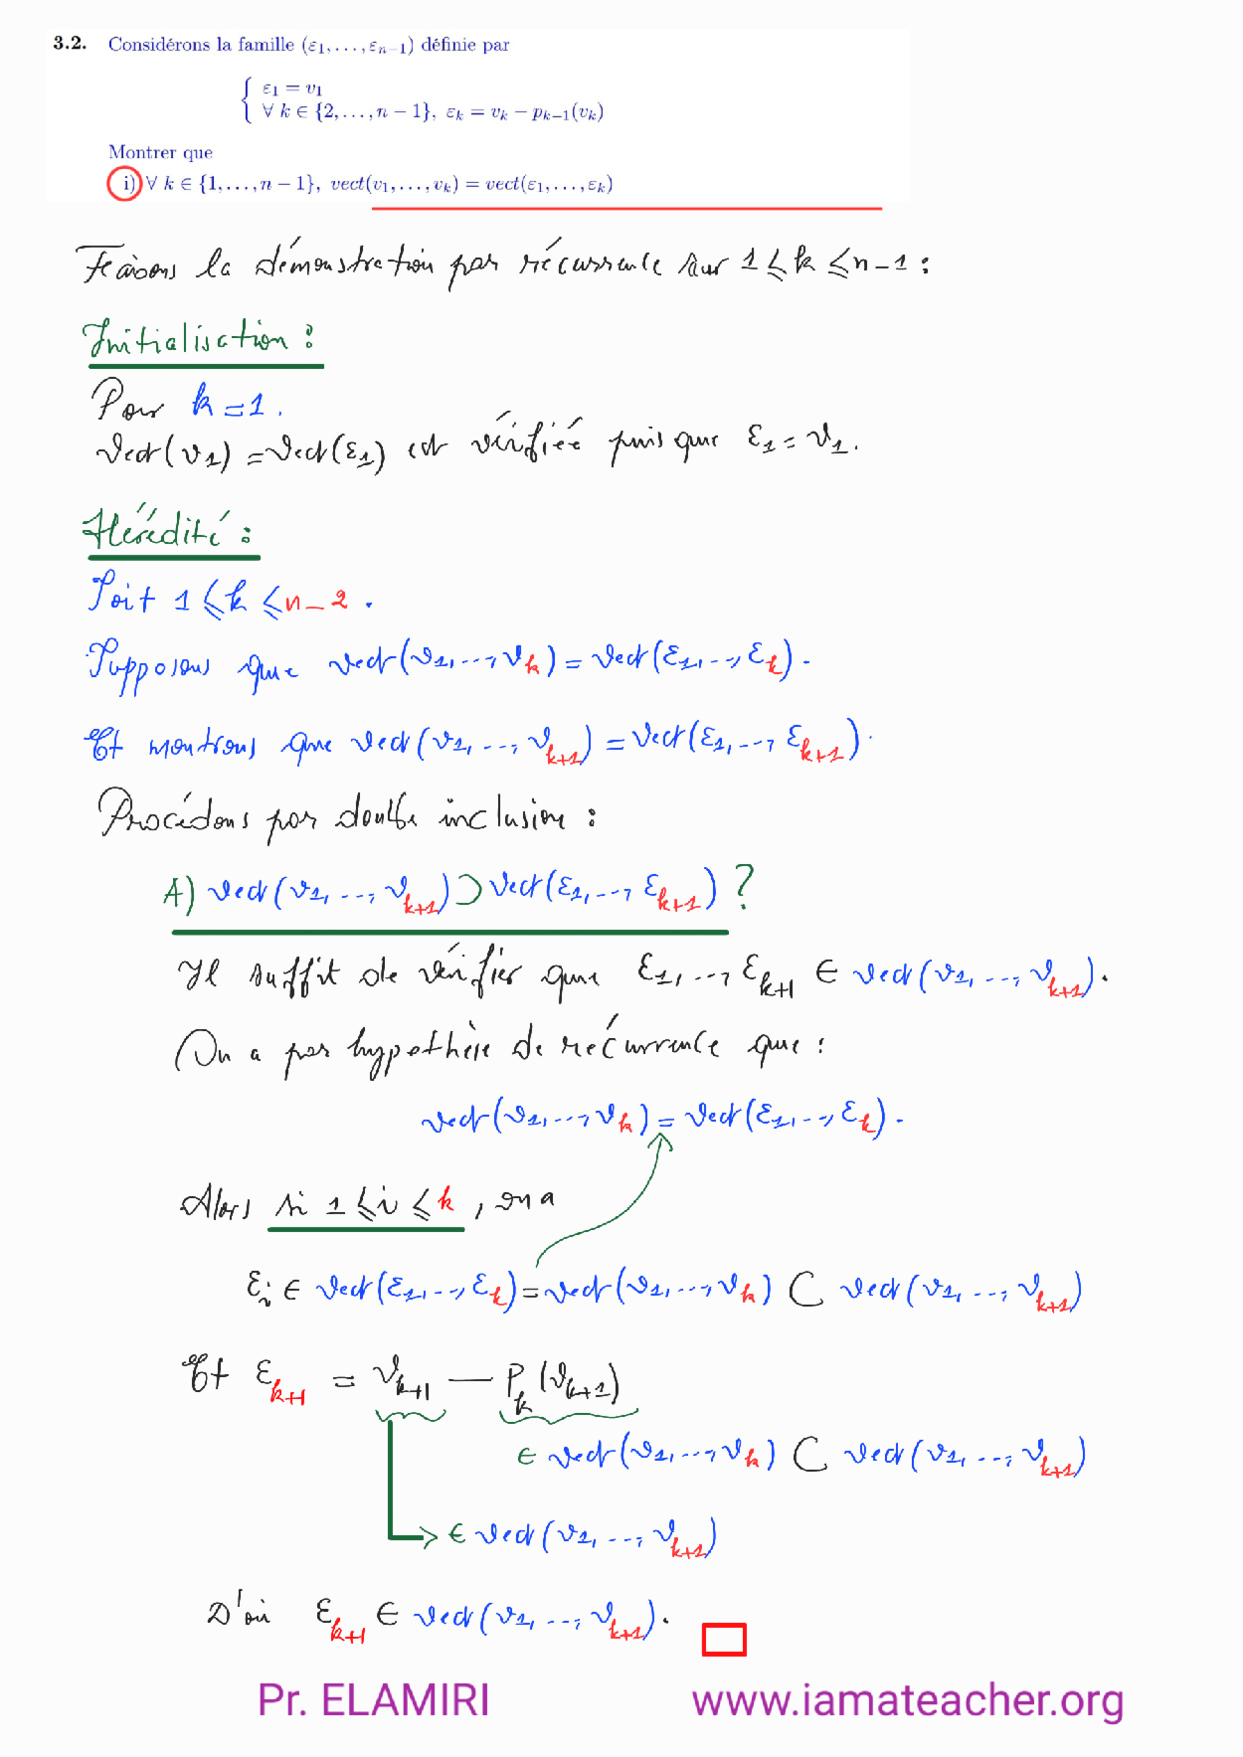 3.2. Considérons la famille (ε₁, . . . , εₙ₋₁) définie par
{ ε₁ = v₁
∀ k ∈ {2, . . . , n − 1}, εₖ = vₖ − pₖ₋₁(vₖ)
Montrer que
i) ∀ k ∈ {1, . . . , n − 1}, vect(v₁, . . . , vₖ) = vect(ε₁, . . . , εₖ)
Faisons la démonstration par récurrence sur 1 ⩽ k ⩽ n-1 :
Initialisation :
Pour k = 1.
Vect(v₁) = Vect(ε₁) est vérifiée puis que ε₁ = v₁.
Hérédité :
Soit 1 ⩽ k ⩽ n-2.
Supposons que Vect(v₁, ..., vₖ) = Vect(ε₁, .., εₖ).
Et montrons que Vect(v₁, ..., vₖ₊₁) = Vect(ε₁, ..., εₖ₊₁).
Procédons par double inclusion :
A) Vect(v₁, ..., vₖ₊₁) ⊃ Vect(ε₁, ..., εₖ₊₁) ?
Il suffit de vérifier que ε₁, ..., εₖ₊₁ ∈ Vect(v₁, ..., vₖ₊₁).
On a par hypothèse de récurrence que :
Vect(v₁, ..., vₖ) = Vect(ε₁, .., εₖ).
Alors si 1 ⩽ i ⩽ k, on a
εᵢ ∈ Vect(ε₁, .., εₖ) = Vect(v₁, ..., vₖ) ⊂ Vect(v₁, ..., vₖ₊₁)
Et εₖ₊₁ = vₖ₊₁ — Pₖ(vₖ₊₁)
∈ Vect(v₁, ..., vₖ) ⊂ Vect(v₁, ..., vₖ₊₁)
→ ∈ Vect(v₁, ..., vₖ₊₁)
D'où εₖ₊₁ ∈ Vect(v₁, ..., vₖ₊₁).
Pr. ELAMIRI www.iamateacher.org